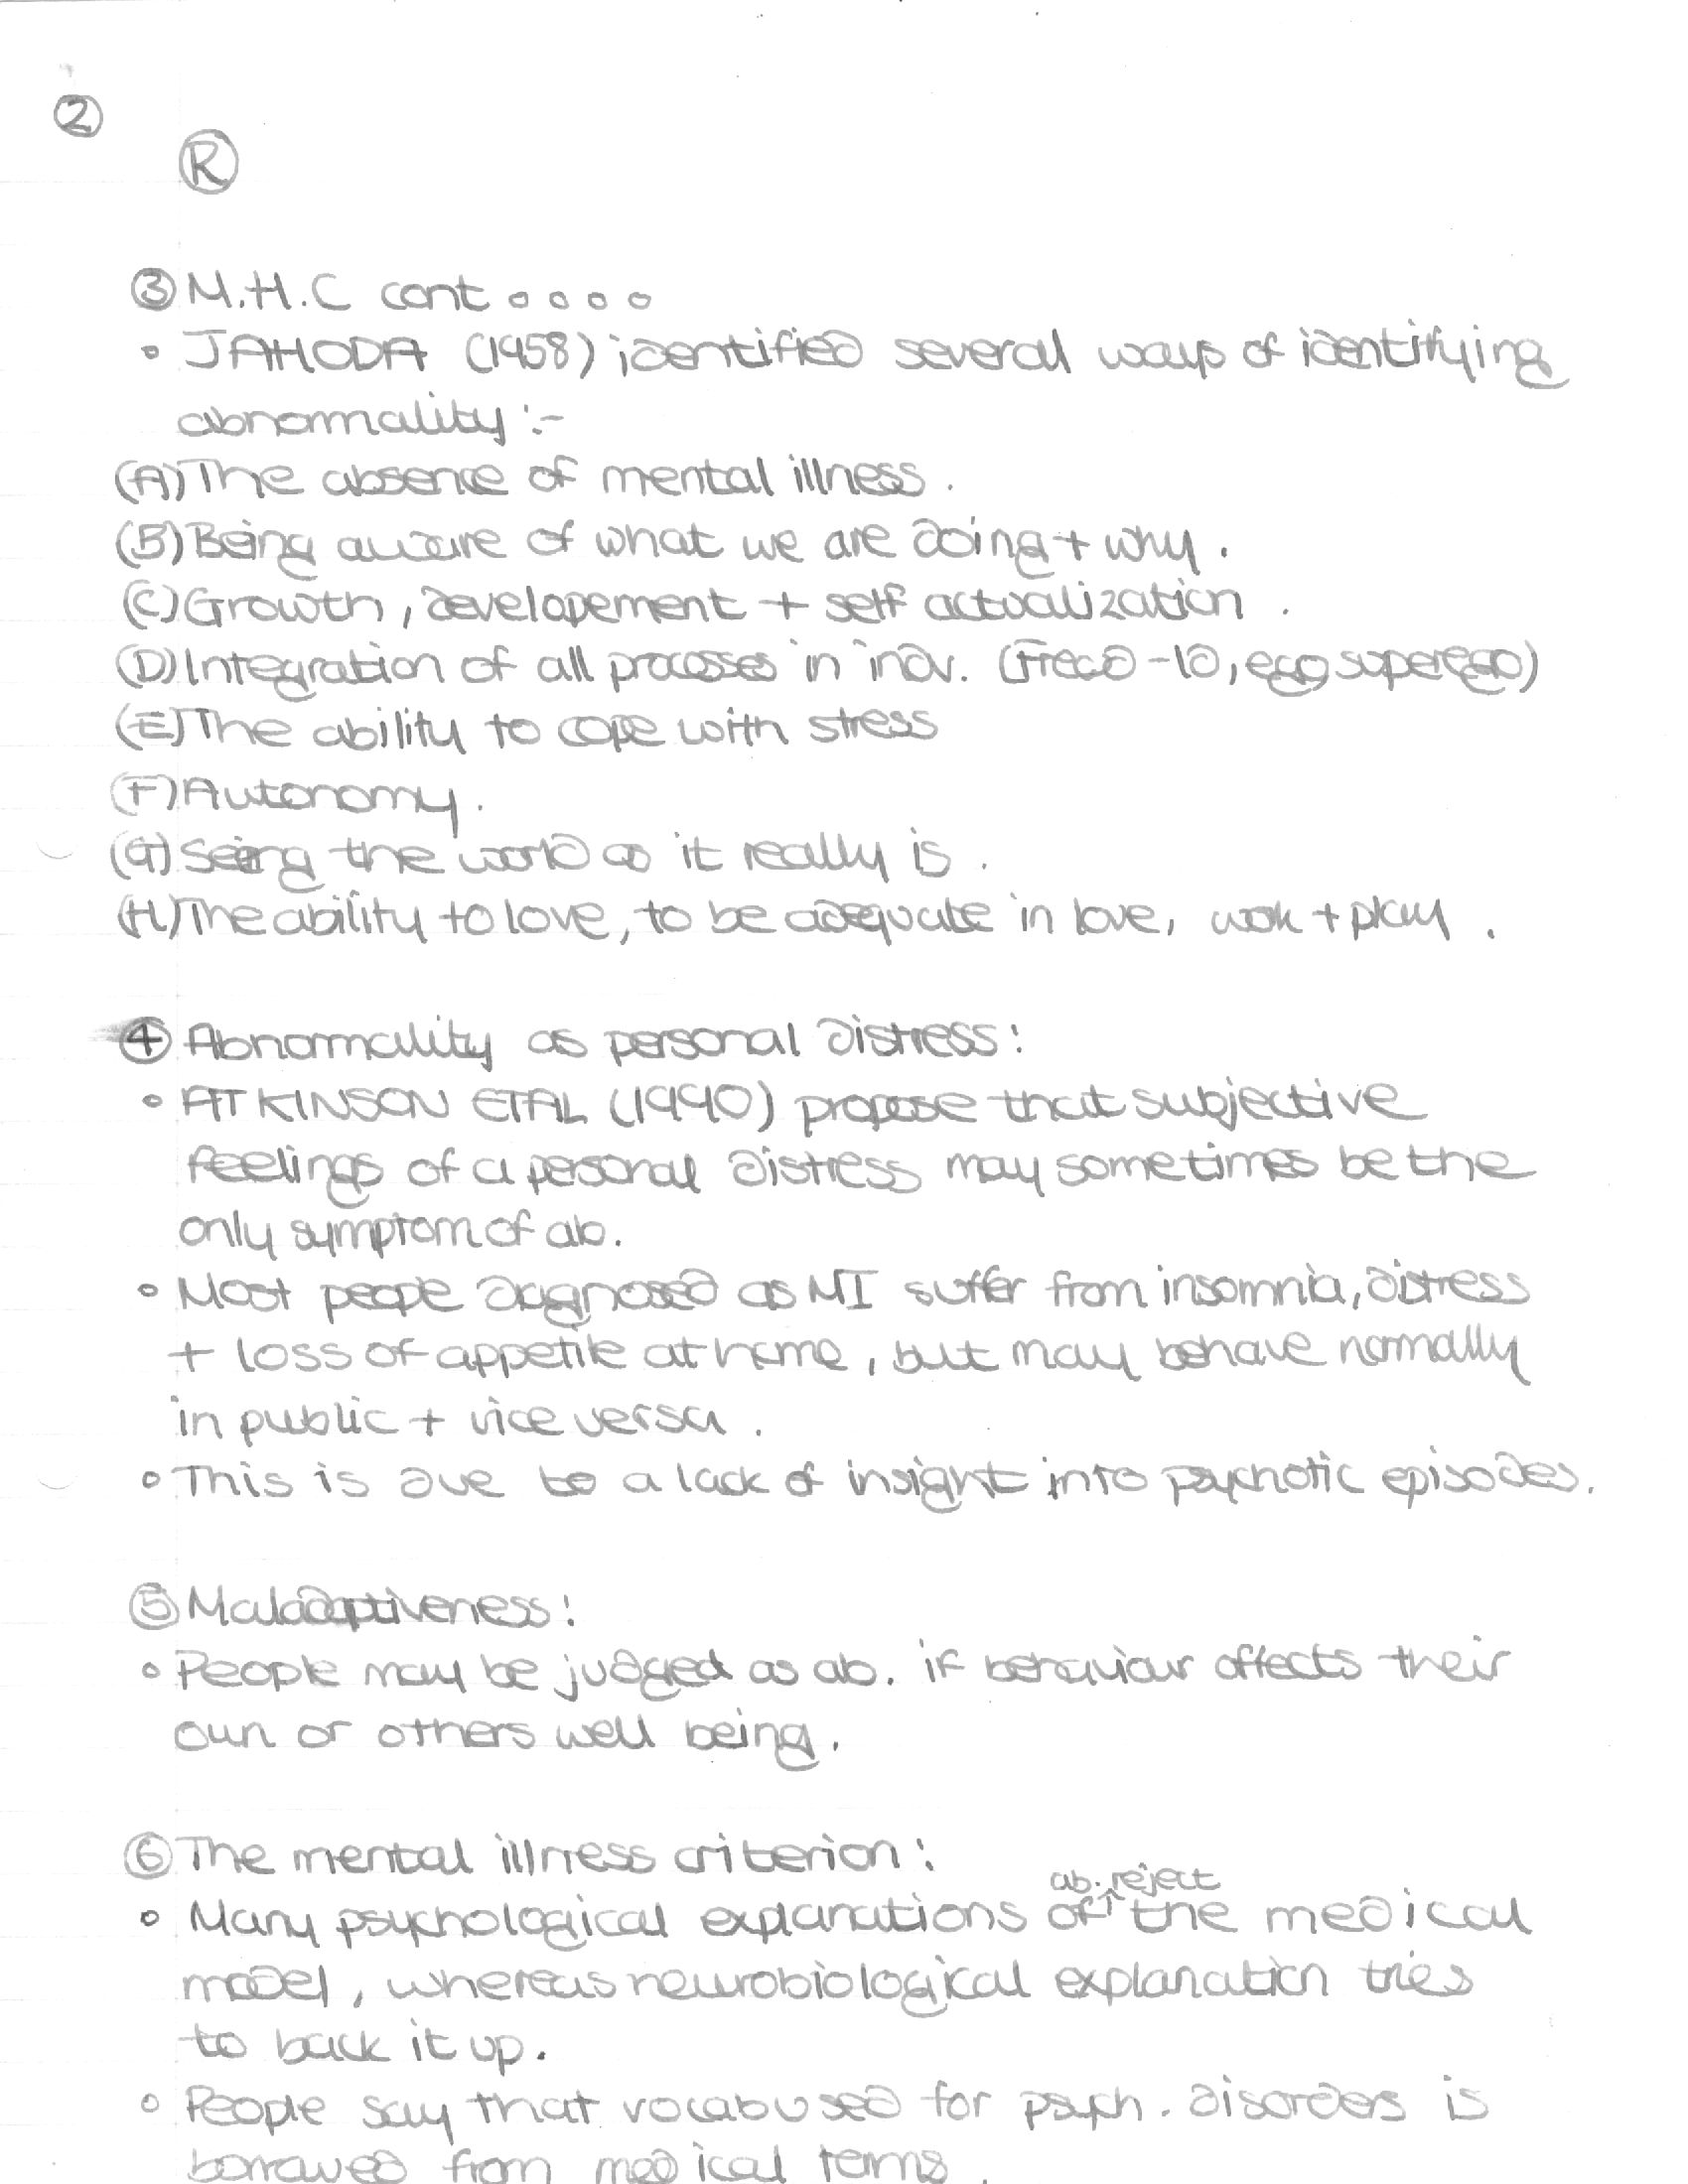 ②
Ⓡ
③ M.H.C cont ....
• JAHODA (1958) identified several ways of identifying
abnormality :-
(A) The absence of mental illness.
(B) Being aware of what we are doing + why.
(C) Growth, developement + self actualization.
(D) Integration of all processes in indv. (Freud - Id, ego superego)
(E) The ability to cope with stress
(F) Autonomy.
(G) Seeing the world as it really is.
(H) The ability to love, to be adequate in love, work + play.
④ Abnormality as personal distress:
• ATKINSON ETAL (1990) propose that subjective
feelings of a personal distress may sometimes be the
only symptom of ab.
• Most people diagnosed as MI suffer from insomnia, distress
+ loss of appetite at home, but may behave normally
in public + vice versa.
• This is due to a lack of insight into psychotic episodes.
⑤ Maladaptiveness:
• People may be judged as ab. if behaviour affects their
own or others well being.
⑥ The mental illness criterion:
• Many psychological explanations of ab. reject the medical
model, whereas neurobiological explanation tries
to back it up.
• People say that vocab used for psych. disorders is
borrowed from medical terms.